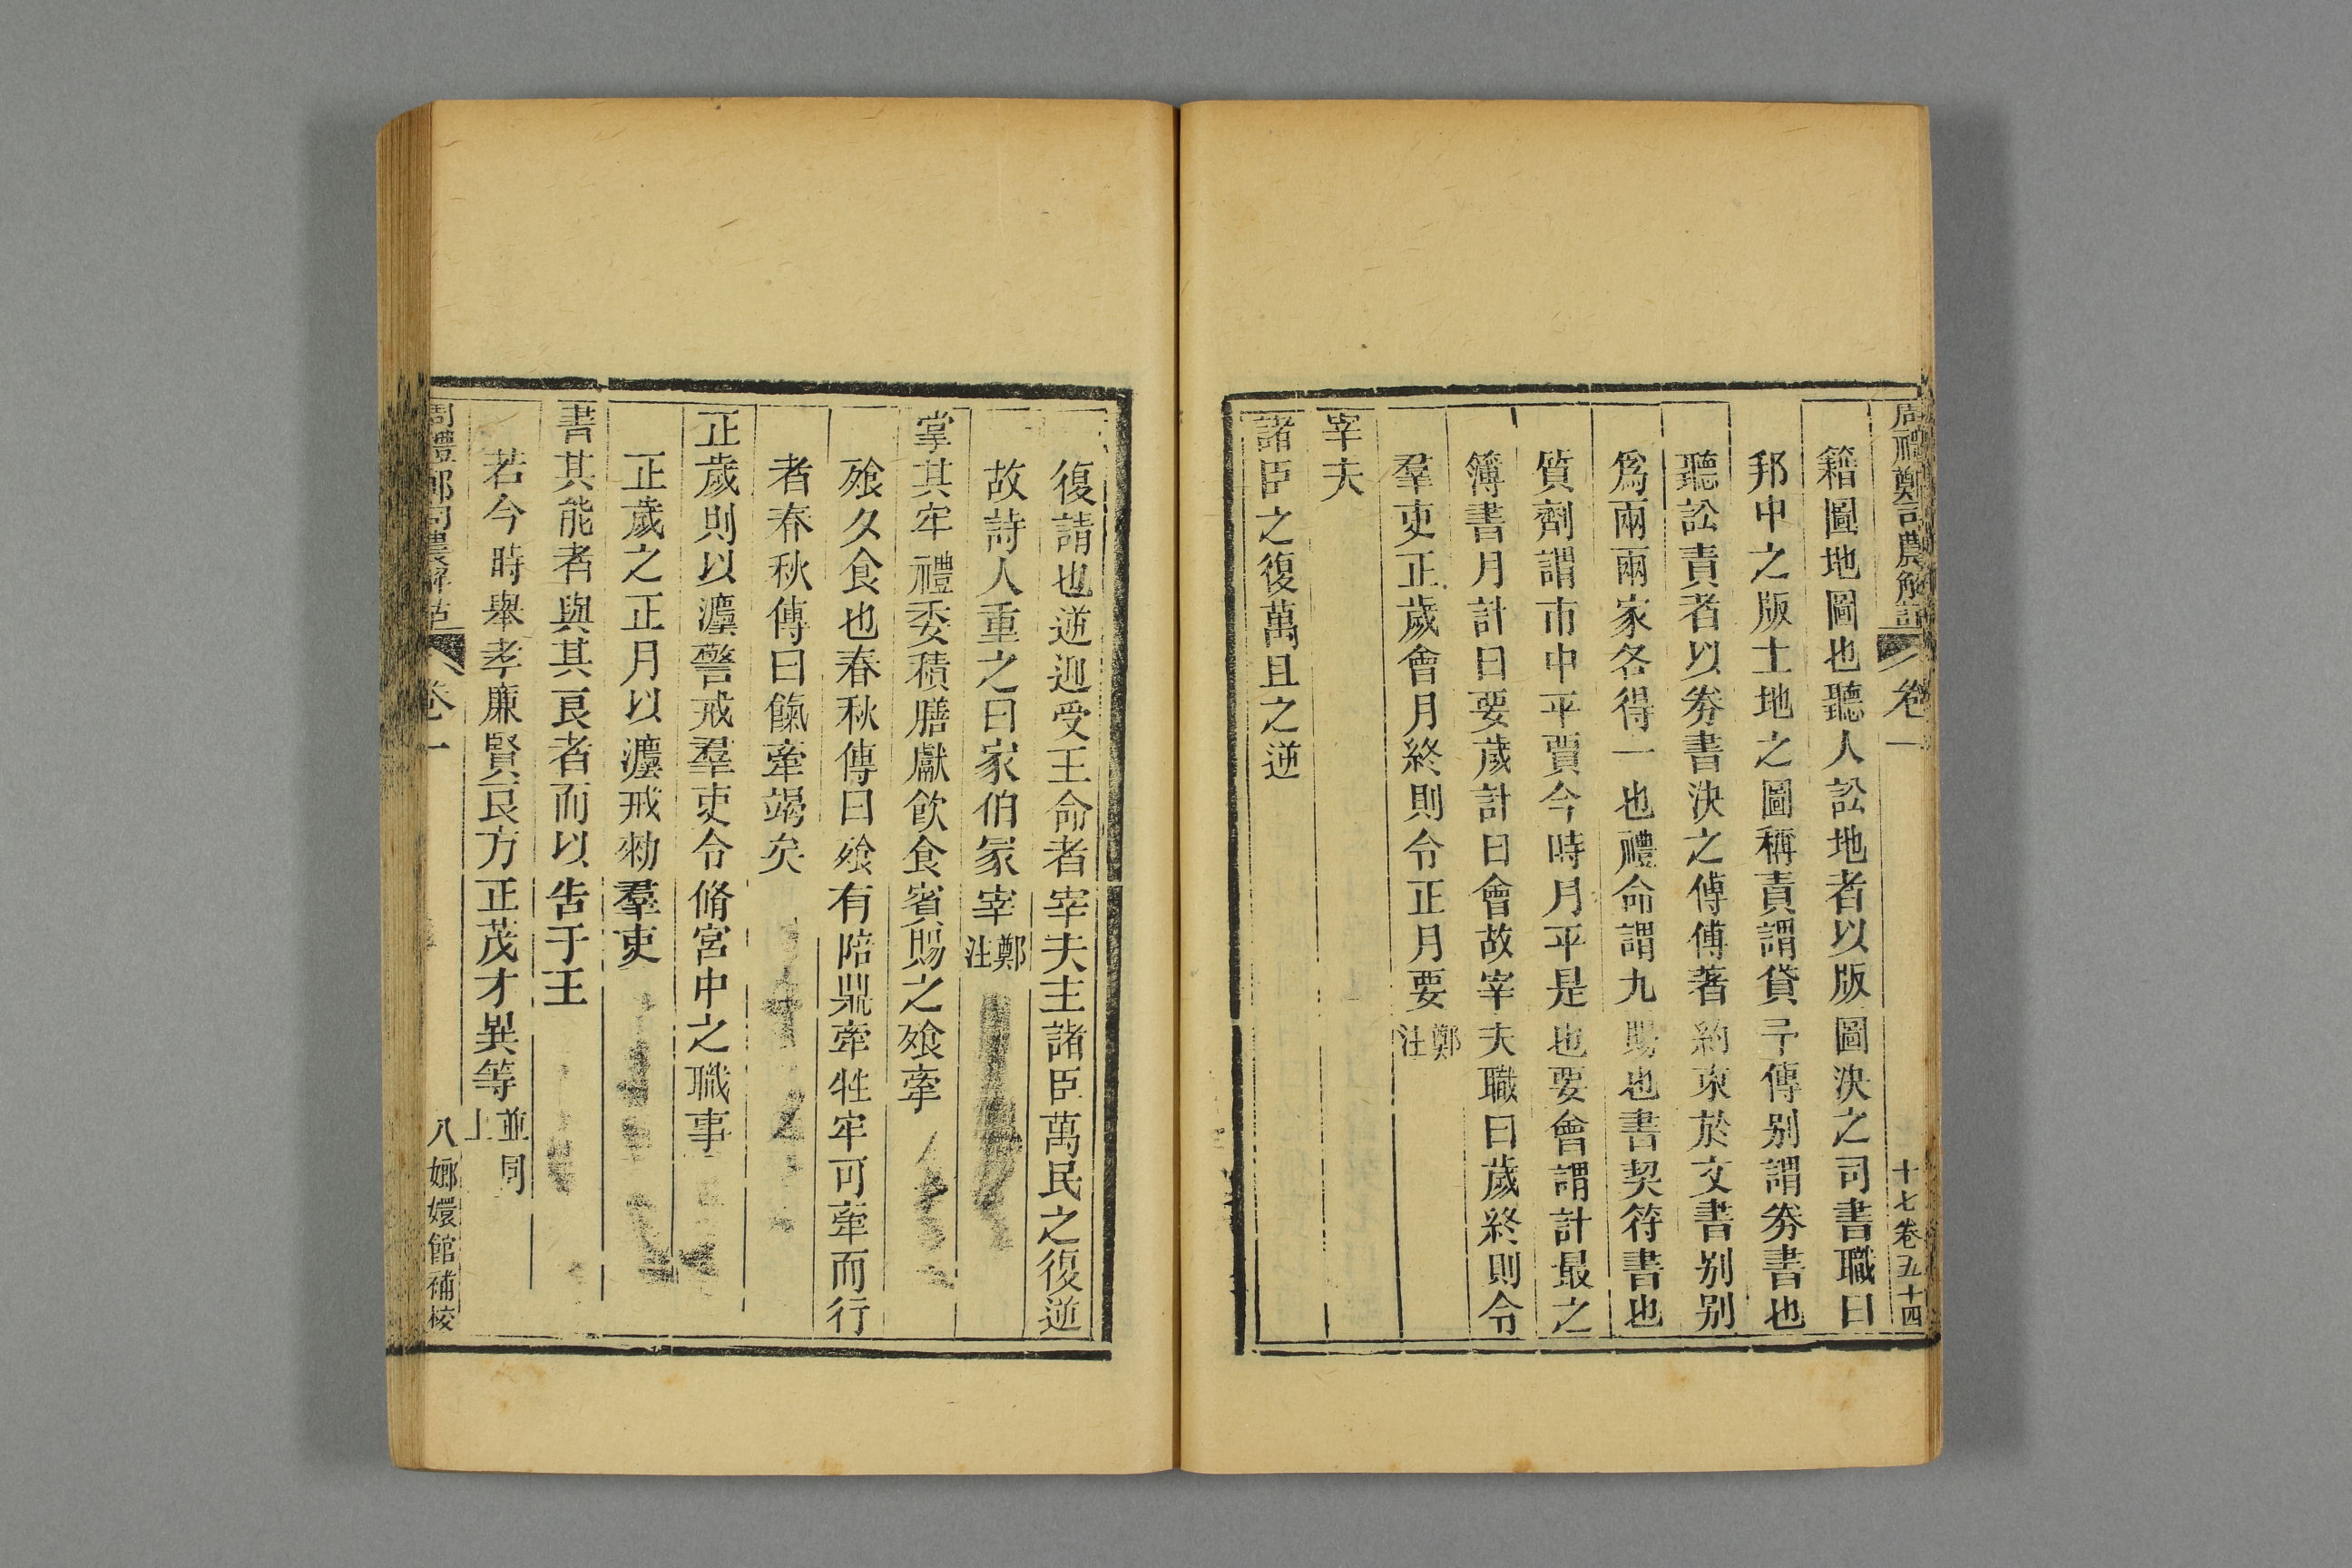 周禮鄭司農解詁 卷一 十七卷五十四
籍圖地圖也聽人訟地者以版圖決之司書職曰
邦中之版土地之圖稱責謂貸予傅别謂券書也
聽訟責者以券書決之傅傅著約束於文書别别
爲兩兩家各得一也禮命謂九賜也書契符書也
質劑謂市中平賈今時月平是也要會謂計最之
簿書月計曰要歲計曰會故宰夫職曰歲終則令
羣吏正歲會月終則令正月要鄭注
宰夫
諸臣之復萬且之逆
復請也逆迎受王命者宰夫主諸臣萬民之復逆
故詩人重之曰家伯冢宰鄭注
掌其牢禮委積膳獻飲食賓賜之飧牽
飧夕食也春秋傳曰飧有陪鼎牽牲牢可牽而行
者春秋傳曰餼牽竭矣
正歲則以灋警戒羣吏令脩宮中之職事
正歲之正月以灋戒勑羣吏
書其能者與其良者而以告于王
若今時舉孝廉賢良方正茂才異等並同上
周禮鄭司農解詁 卷一 八 嫏嬛館補校